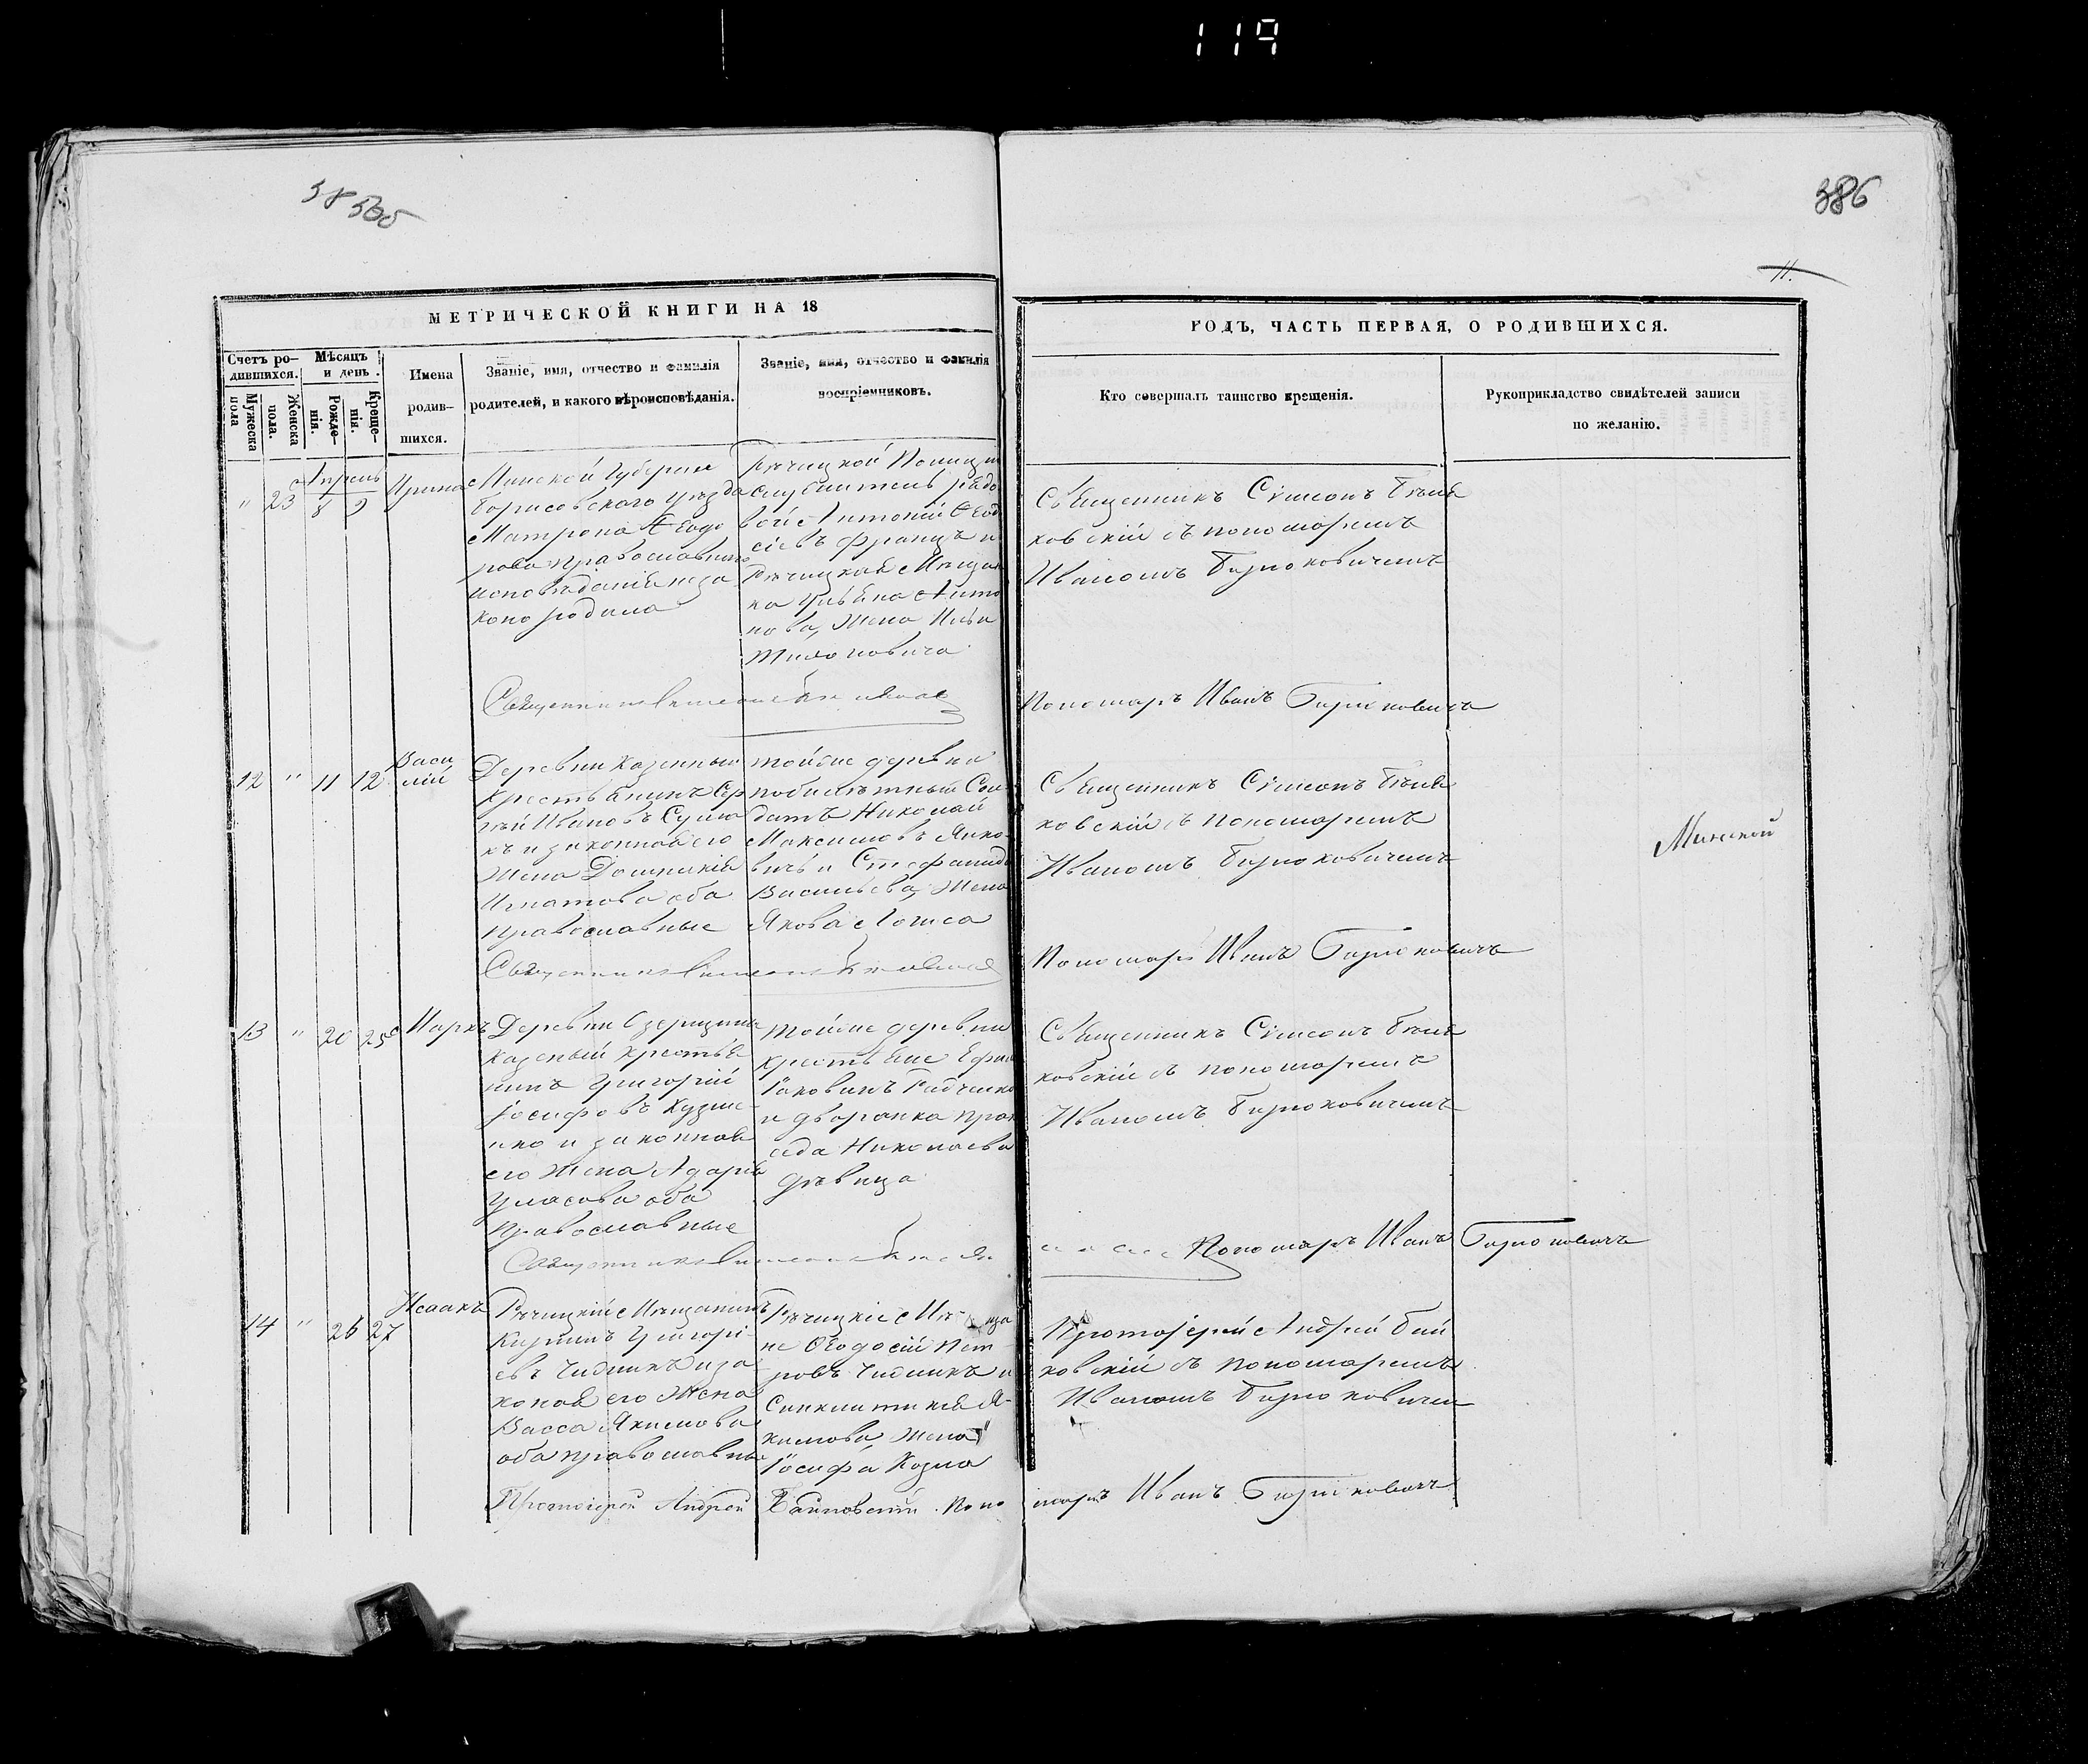 119
385об
386
11.
МЕТРИЧЕСКОЙ КНИГИ НА 18
ГОДЪ, ЧАСТЬ ПЕРВАЯ, О РОДИВШИХСЯ.
Счетъ ро-
дившихся.
Мужеска
пола
Женска
пола.
Мѣсяцъ
и день.
Рожде-
нія.
Креще-
нія.
Имена
родив-
шихся.
Званіе, имя, отчество и фамилія
родителей, и какого вѣроисповѣданія.
Званіе, имя, отчество и фамилія
воспріемниковъ.
Кто совершалъ таинство крещенія.
Рукоприкладство свидѣтелей записи
по желанію.
Апрель
" 23 8 9
Ирина
Минской Губерніи
Борисовскаго уѣзда
Матрона Ѳеодо
рова православнаго
исповѣданія неза
коно родила
Рѣчицкой Полиціи
служитель рядо
вой Антоній Ѳеод
сіевъ Францъ и
Рѣчицкая Мѣщан
ка Ульяна Анто
нова, жена Ильи
Священникъ Симеонъ Бѣля
ковскій съ пономаремъ
Иваномъ Бирюковичемъ
Священникъ Симеонъ
Пономарь Иванъ Бирюковичъ
12 " 11 12
Васи
лій
Деревни казенный
крестьянинъ Сер
гѣй Ивановъ
и законная его
жена Домникія
Игнатова оба
православные
тойже деревни
Сол
датъ Николай
Максимовъ Янко
вичъ и Стефанида
Васильева, жена
Якова
Священникъ Симеонъ Бѣля
ковскій съ пономаремъ
Иваномъ Бирюковичемъ
Минской
Священникъ Симеонъ
Пономарь Иванъ Бирюковичъ
13 " 20 25
Маркъ
Деревни Озерщины
казеный крестья
нинъ Григорій
Іосифовъ Кузме
нко и законная
его жена Дарья
Уласова оба
православные
тойже деревни
крестьяне Ефи
Іаковинъ Радченко
и дворянка Прак
седа Николаева
дѣвица
Священникъ Симеонъ Бѣля
ковскій съ пономаремъ
Иваномъ Бирюковичемъ
Священникъ Симеонъ
Пономарь Иванъ Бирюковичъ
14 " 26 27
Исаакъ
Рѣчицкій Мѣщанинъ
Кирилъ Григорі-
евъ Чидникъ иза
коная его жена
Васса Якимова
оба православны
Рѣчицкіе Мѣща
не Ѳеодосій Пет-
ровъ Чидникъ и
Синклитикія Я-
кимова, жена
Іосифа Козла
Протоіерей Андрей Бай
ковскій съ пономаремъ
Иваномъ Бирюковичем
Протоіерей Андрей Байковскій. Поно
марь Иванъ Бирюковичъ